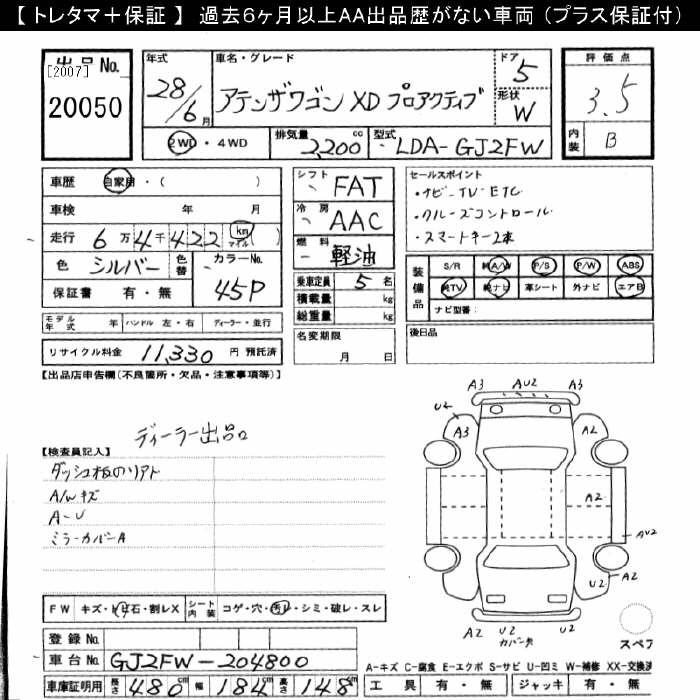 【 トレタマ+保証 】 過去6ヶ月以上AA出品歴がない車両 (プラス保証付)
出品 No.
[2007]
20050
年式
28/6月
車名・グレード
アテンザワゴン XD プロアクティブ
ドア
5
形状
W
2WD・4WD
排気量
2,200 cc
型式
LDA-GJ2FW
評価点
3.5
内装
B
車歴 自家用・( )
車検 年 月
走行 6万4千422 km マイル ( )
色 シルバー 色替
カラーNo.
45P
保証書 有・無
モデル年式 年 ハンドル 左・右 ディーラー・並行
リサイクル料金 11,330 円 預託済
シフト FAT
冷房 AAC
燃料 軽油
乗車定員 5 名
積載量 kg
総重量 kg
名変期限
月 日
セールスポイント
・ナビ・TV・ETC
・クルーズコントロール
・スマートキー2本
装備品
S/R 純A/W P/S P/W ABS
純TV 純ナビ 革シート 外ナビ エアB
ナビ型番:
後日品
【出品店申告欄(不良箇所・欠品・注意事項等)】
ディーラー出品
【検査員記入】
ダッシュ板のリアト
A/Wキズ
A-U
ミラーカバーA
A3 AU2 A3
U2
A3 A2
A2
AU2
U2 A2
A2 U2 U2
FW キズ・トビ石・割レX シート内装 コゲ・穴・汚レ・シミ・破レ・スレ
登録 No.
車台 No. GJ2FW-204800
車庫証明用 長さ 480cm 幅 184cm 高さ 148
スペア
A-キズ C-腐食 E-エクボ S-サビ U-凹ミ W-補修 XX-交換済
工具 有・無 ジャッキ 有・無